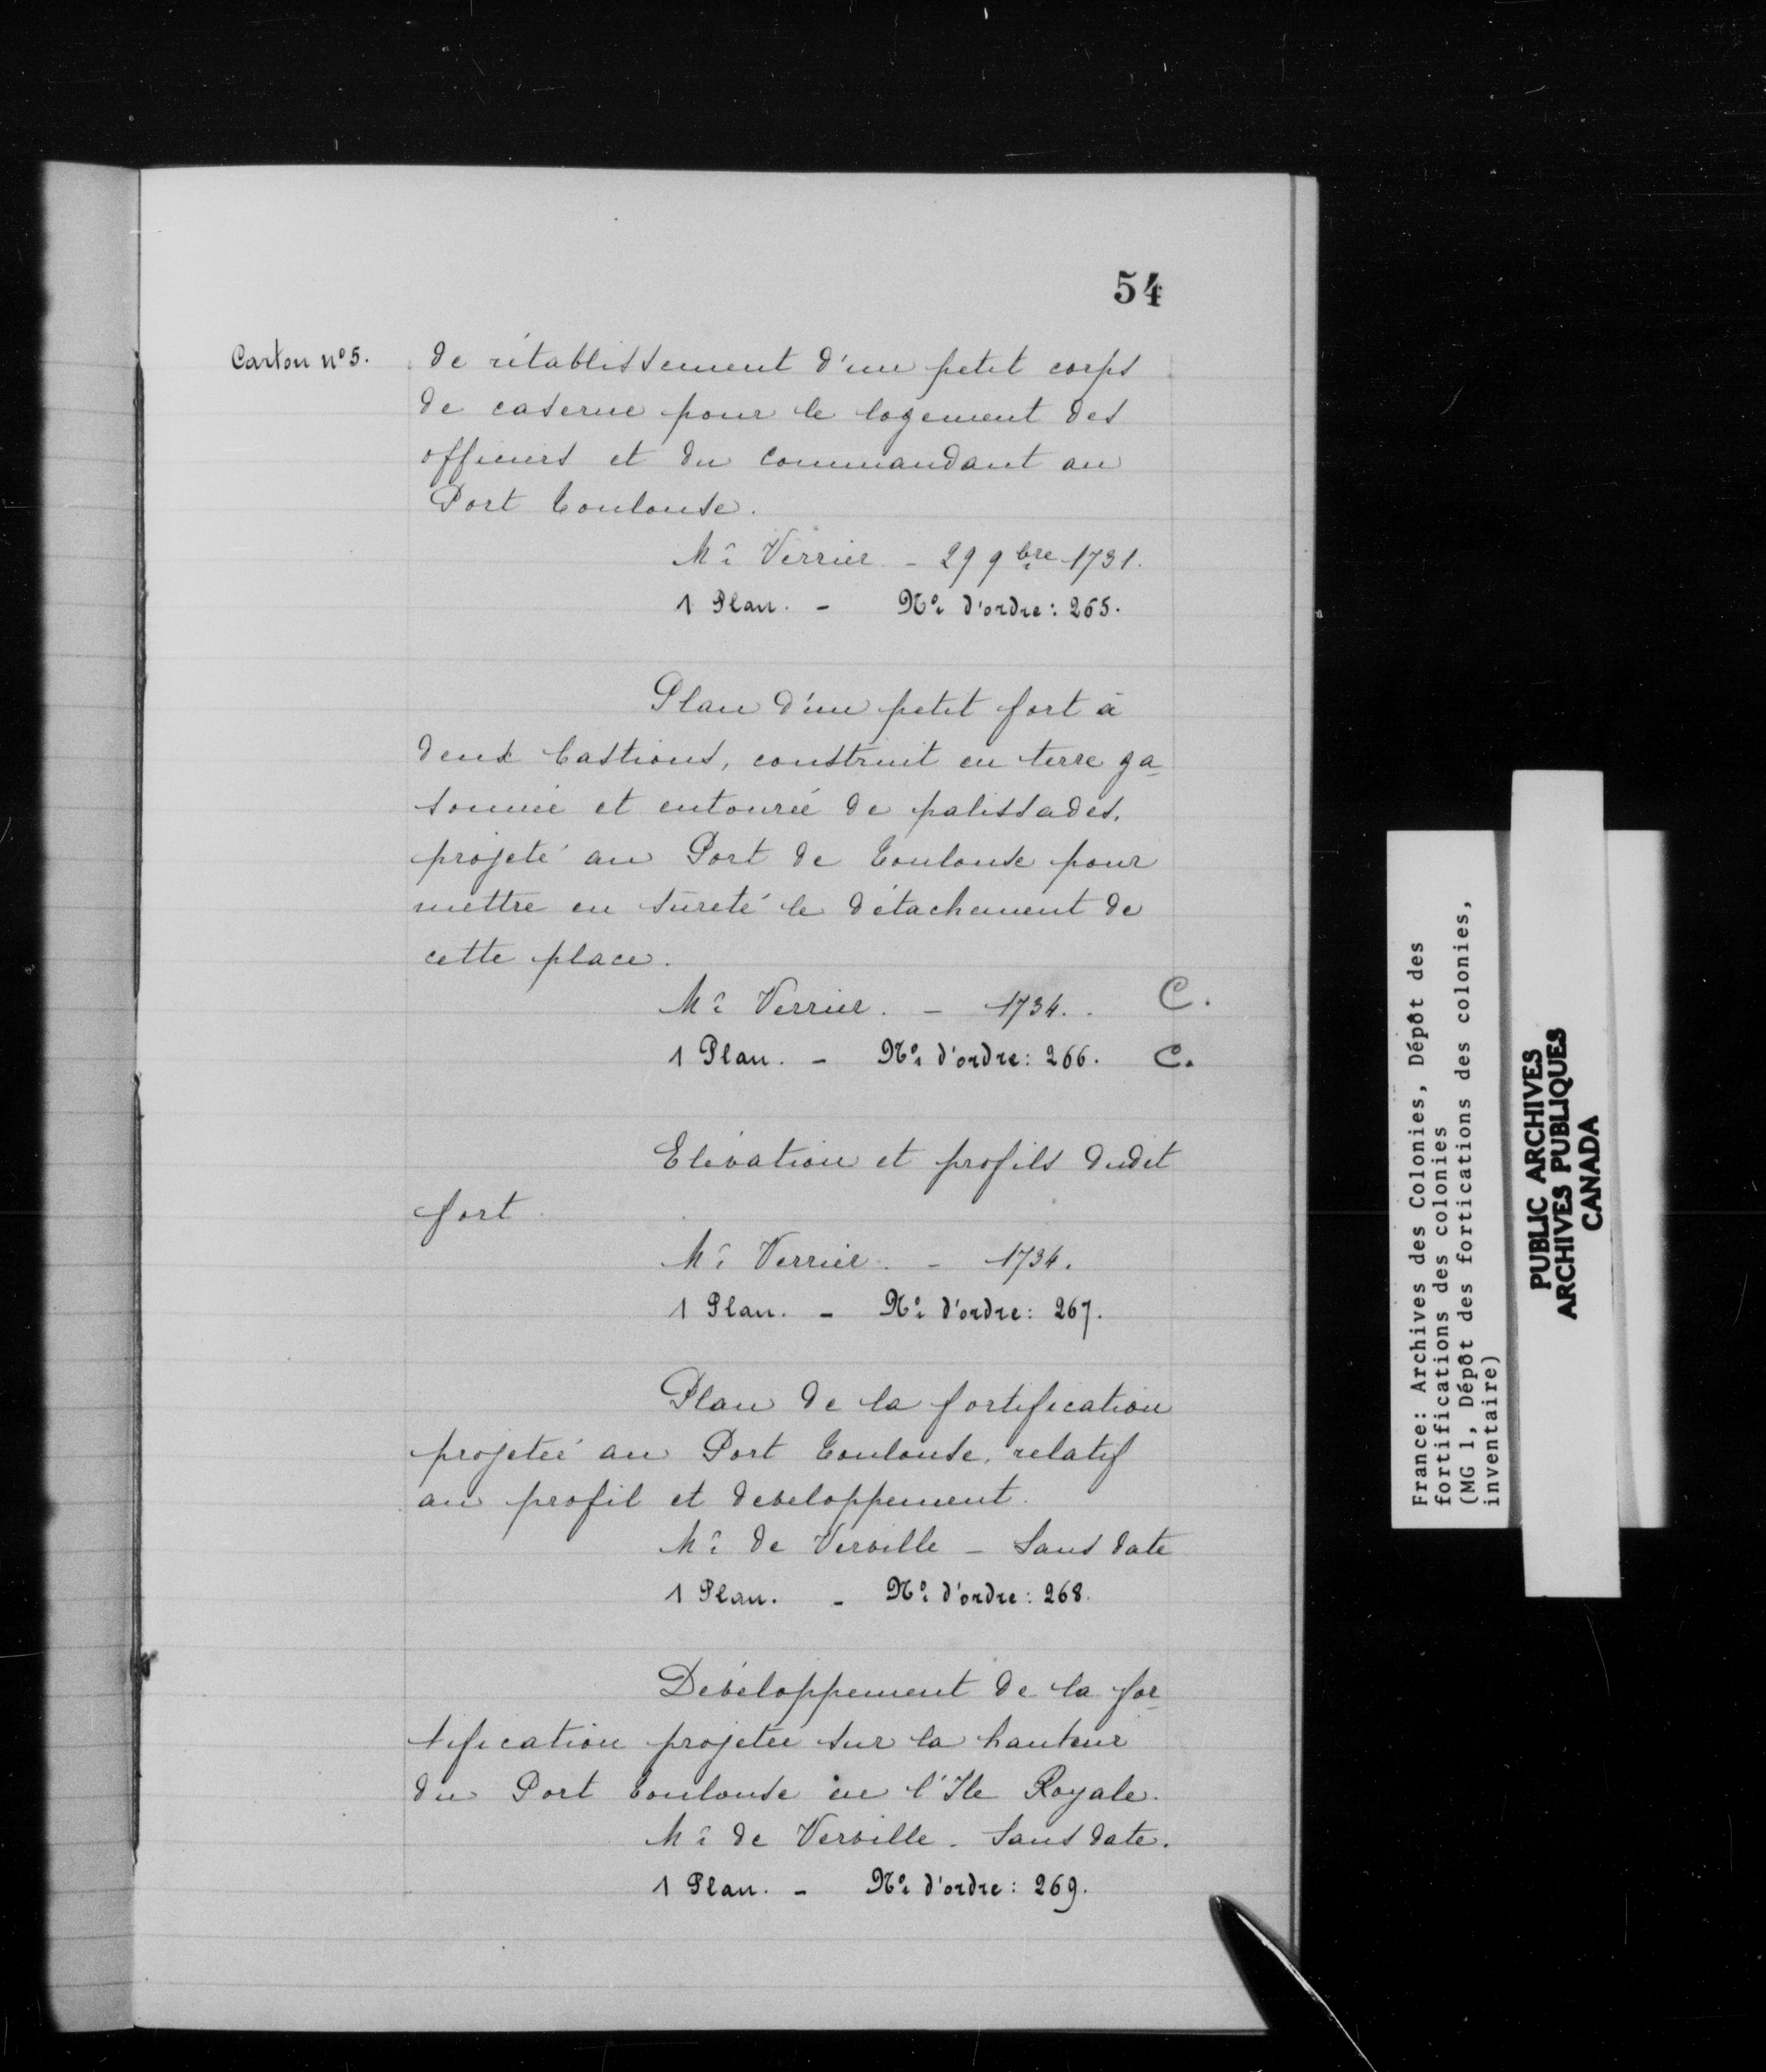 54
Carton nº 5.
de rétablissement d'un petit corps
de caserne pour le logement des
officiers et du Commandant au
Port Toulouse.
Mr Verrier - 29 9bre 1731.
1 Plan. - No d'ordre : 265.
Plan d'un petit fort à
deux bastions, construit en terre ga-
sonnée et entourée de palissades,
projeté au Port de Toulouse pour
mettre en sûreté le détachement de
cette place.
Mr Verrier. - 1734. C.
1 Plan. - No d'ordre : 266. C.
Elévation et profils dudit
fort
Mr Verrier. - 1734.
1 Plan. - No d'ordre : 267.
Plan de la fortification
projetée au Port Toulouse, relatif
au profil et développement.
Mr de Verville - Sans date
1 Plan. - No d'ordre : 268.
Développement de la for-
tification projetée sur la hauteur
du Port Toulouse en l'Ile Royale.
Mr de Verville - Sans date.
1 Plan. - No d'ordre : 269.
France: Archives des Colonies, Dépôt des
fortifications des colonies
(MG 1, Dépôt des fortications des colonies,
inventaire)
PUBLIC ARCHIVES
ARCHIVES PUBLIQUES
CANADA